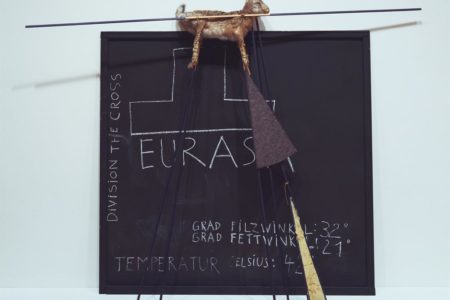 DIVISION THE CROSS
EURAS
GRAD FILZWINKEL: 32°
GRAD FETTWINKEL: 21°
TEMPERATUR CELSIUS: